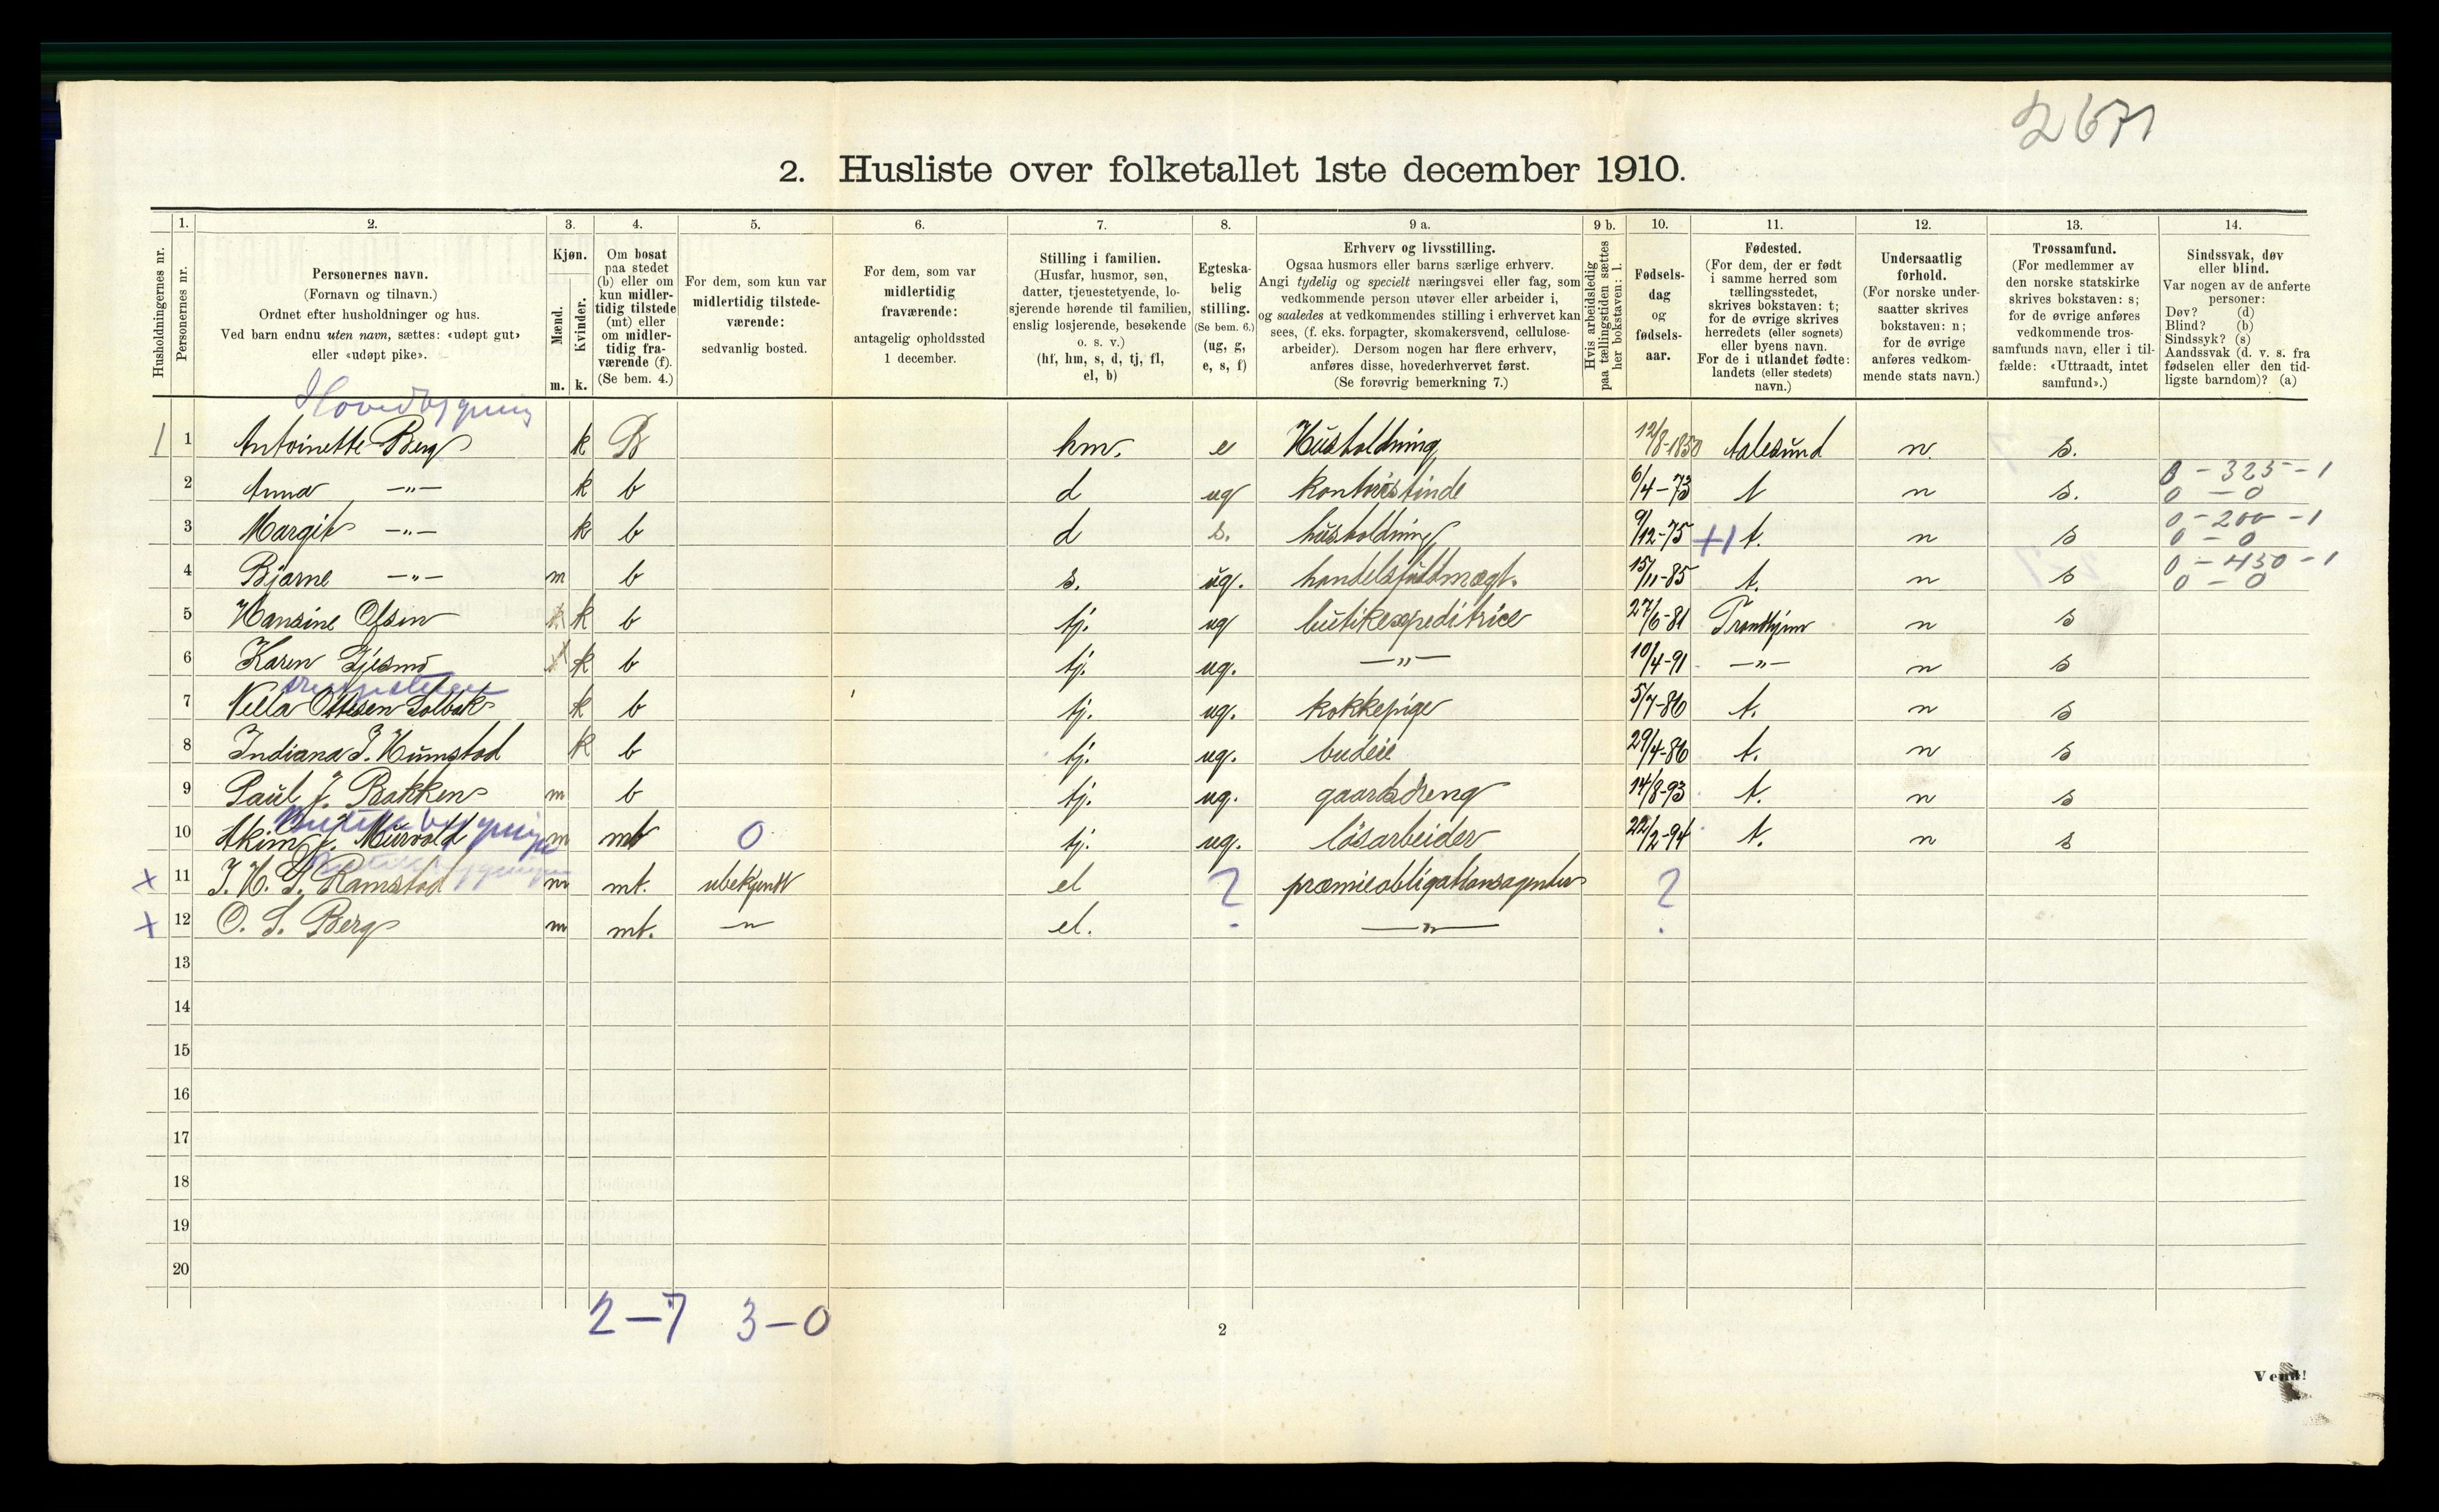 2671
2. Husliste over folketallet 1ste december 1910.
Husholdningernes nr.
1.
Personernes nr.
2.
Personernes navn.
(Fornavn og tilnavn.)
Ordnet efter husholdninger og hus.
Ved barn endnu uten navn, sættes: «udøpt gut»
eller «udøpt pike».
3.
Kjøn.
Mænd.
Kvinder.
m. k.
4.
Om bosat
paa stedet
(b) eller om
kun midler-
tidig tilstede
(mt) eller
om midler-
tidig fra-
værende (f).
(Se bem. 4.)
5.
For dem, som kun var
midlertidig tilstede-
værende:
sedvanlig bosted.
6.
For dem, som var
midlertidig
fraværende:
antagelig opholdssted
1 december.
7.
Stilling i familien.
(Husfar, husmor, søn,
datter, tjenestetyende, lo-
sjerende hørende til familien,
enslig losjerende, besøkende
o. s. v.)
(hf, hm, s, d, tj, fl,
el, b)
8.
Egteska-
belig
stilling.
(Se bem. 6.)
(ug, g,
e, s, f)
9 a.
Erhverv og livsstilling.
Ogsaa husmors eller barns særlige erhverv.
Angi tydelig og specielt næringsvei eller fag, som
vedkommende person utøver eller arbeider i,
og saaledes at vedkommendes stilling i erhvervet kan
sees, (f. eks. forpagter, skomakersvend, cellulose-
arbeider). Dersom nogen har flere erhverv,
anføres disse, hovederhvervet først.
(Se forøvrig bemerkning 7.)
9 b.
Hvis arbeidsledig
paa tællingstiden sættes
her bokstaven: l.
10.
Fødsels-
dag
og
fødsels-
aar.
11.
Fødested.
(For dem, der er født
i samme herred som
tællingsstedet,
skrives bokstaven: t;
for de øvrige skrives
herredets (eller sognets)
eller byens navn.
For de i utlandet fødte:
landets (eller stedets)
navn.)
12.
Undersaatlig
forhold.
(For norske under-
saatter skrives
bokstaven: n;
for de øvrige
anføres vedkom-
mende stats navn.)
13.
Trossamfund.
(For medlemmer av
den norske statskirke
skrives bokstaven: s;
for de øvrige anføres
vedkommende tros-
samfunds navn, eller i til-
fælde: «Uttraadt, intet
samfund».)
14.
Sindssvak, døv
eller blind.
Var nogen av de anførte
personer:
Døv? (d)
Blind? (b)
Sindssyk? (s)
Aandssvak (d. v. s. fra
fødselen eller den tid-
ligste barndom)? (a)
Hovedbygning
1 1 Antoinette Berg k B hm. e Husholdning 12/8-1850 Aalesund n. s.
0 - 325 - 1
2 Anna -"- k b d ug kontoristinde 6/4-73 t n s. 0 - 0
0 - 200 - 1
3 Margit -"- k b d s. husholdning 9/12-75 t. n s 0 - 0
0 - 450 - 1
4 Bjarne -"- m b s. ug. handelsfuldmægt. 15/11-85 t. n s 0 - 0
5 Hansine Olsen k b tj. ug butikexpeditrice 27/6-81 Trondhjem n s
6 Karen k b tj. ug. -"- 10/4-91 -"- n s
7 Nella Ottesen Solbak k b tj. ug. kokkepige 5/7-86 t. n s
8 Indiana J. Humstad k b tj. ug. budeie 29/4-86 t. n s
9 Paul J. Bakken m b tj. ug. gaardsdreng 14/8-93 t. n s
10 Akim J. Murvold m mt 0 tj. ug. løsarbeider 22/2-94 t. n s
x 11 J. H. S. Ramstad m mt. ubekjendt el ? præmieobligationsagenter ?
x 12 O. S. Berg m mt. -"- el. -"-
13
14
15
16
17
18
19
20
2-7 3-0
2
Vend!